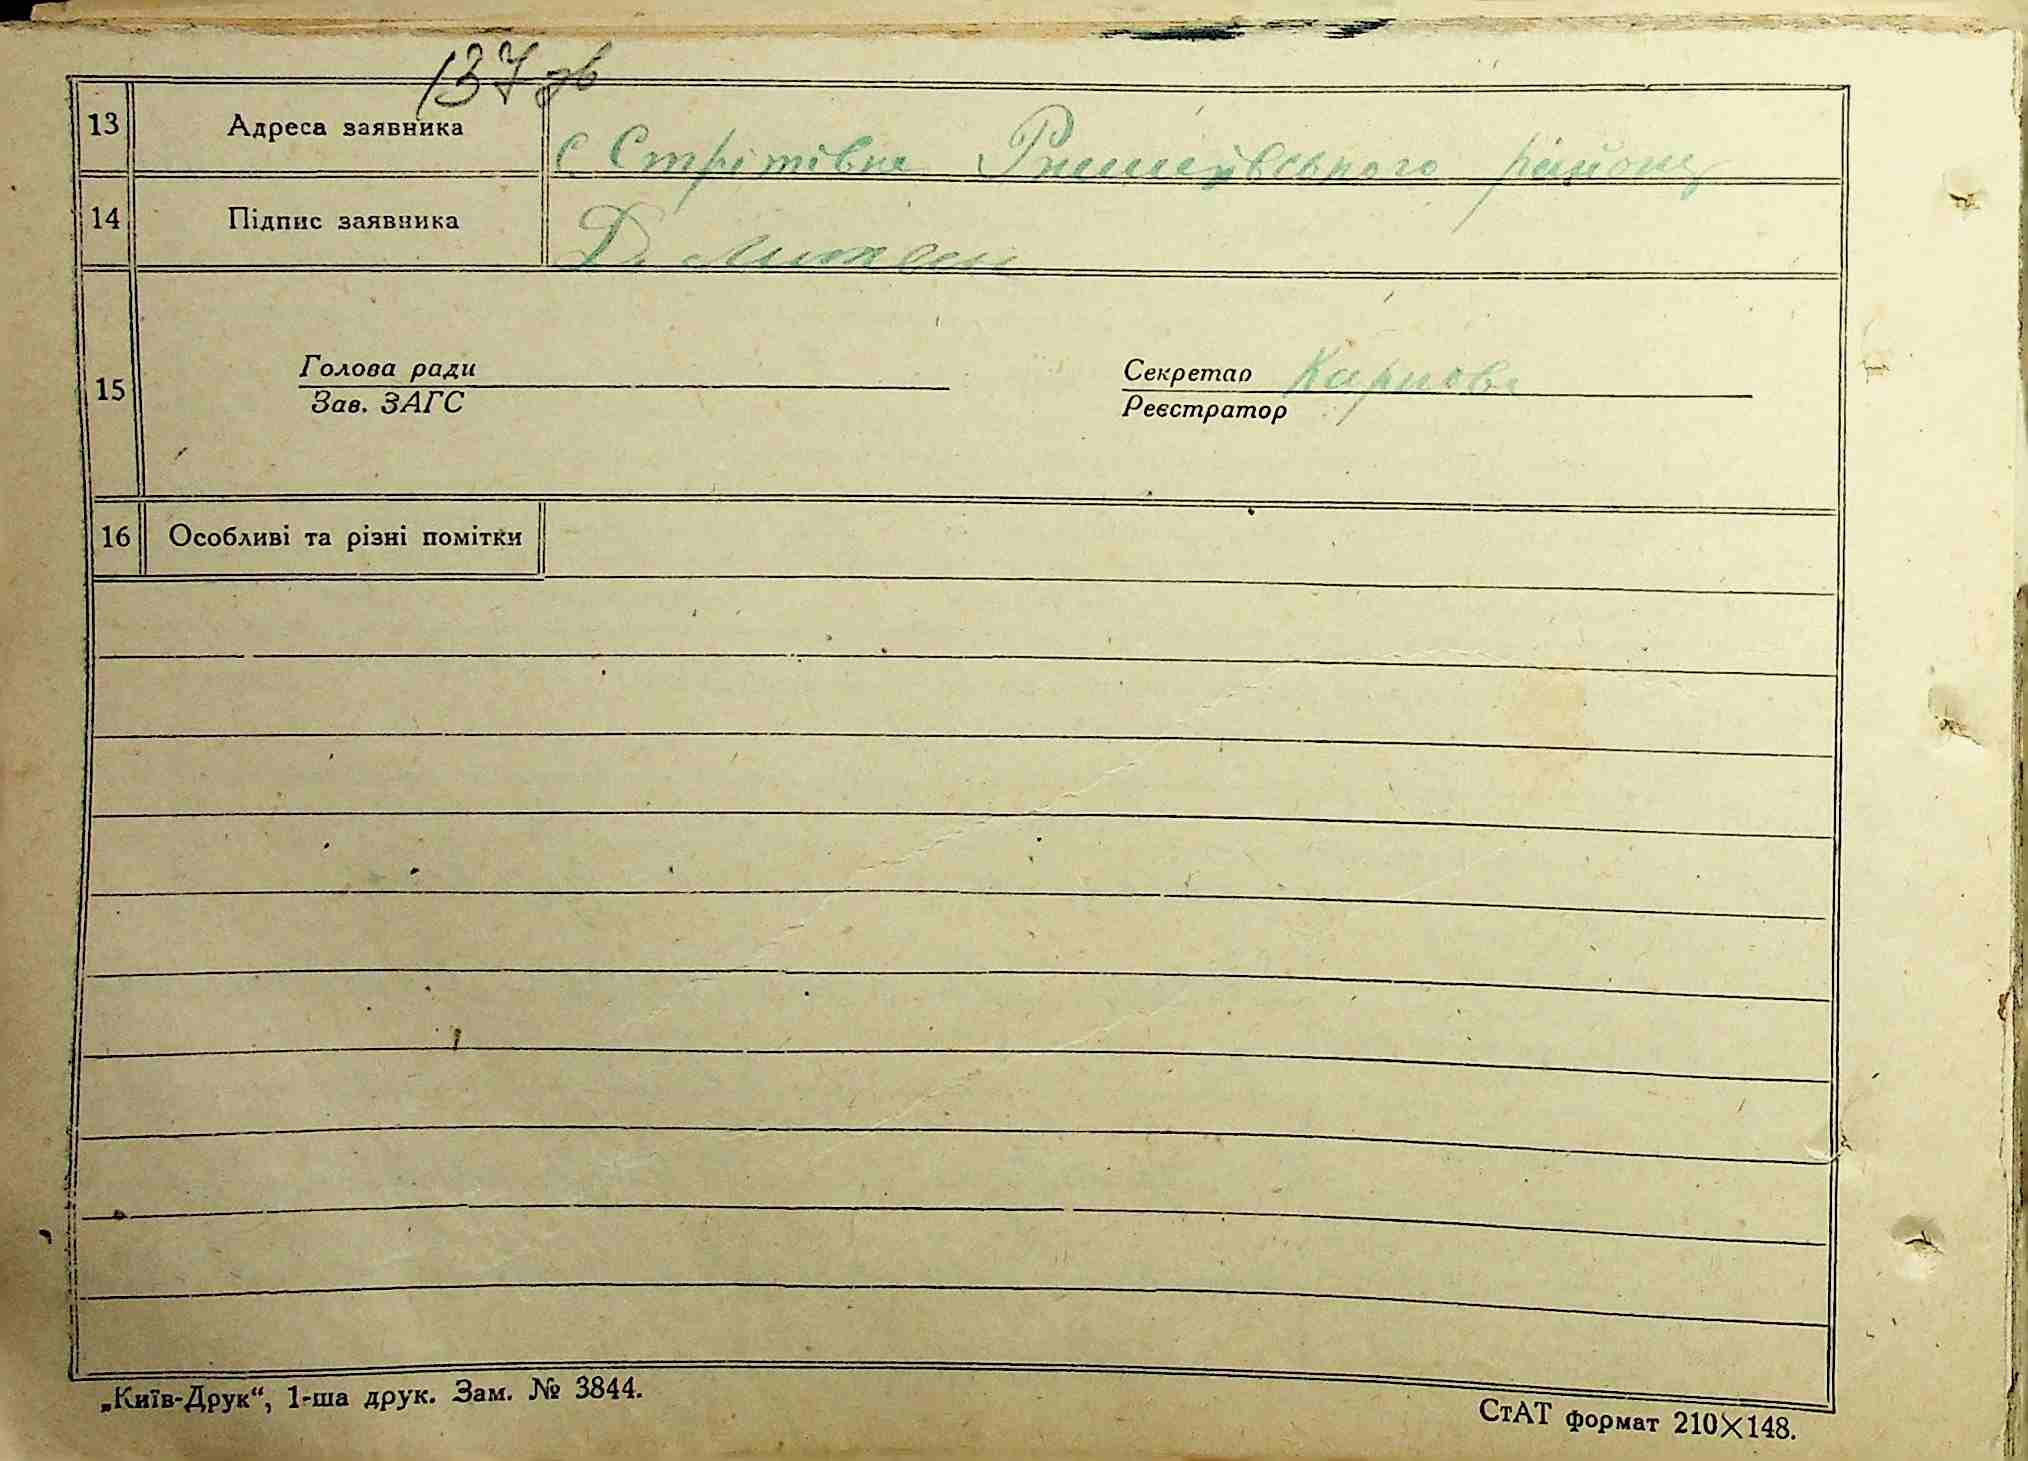 137 зв
13 Адреса заявника с Стрітівка Ржищівського району
14 Підпис заявника Д. Литвин
Голова ради Секретар Карпов
15
Зав. ЗАГС Реєстратор
16 Особливі та різні помітки
„Київ-Друк“, 1-ша друк. Зам. № 3844.
СтАТ формат 210×148.